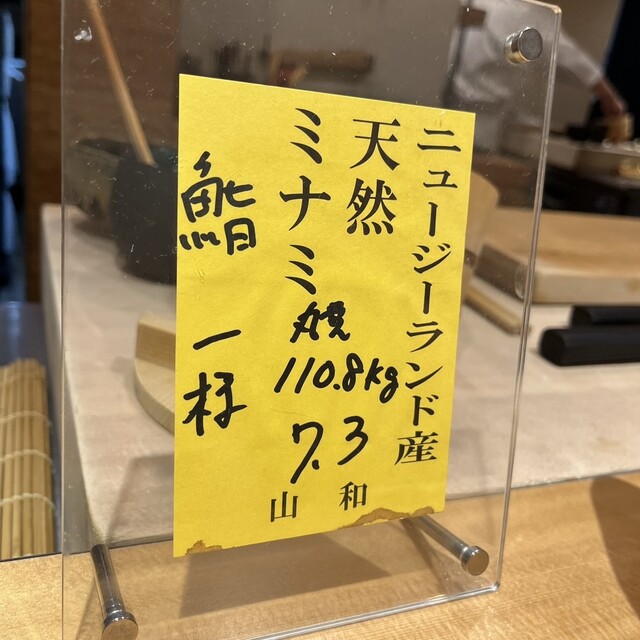 ニュージーランド産
天然
ミナミ
110.8kg
7.3
山和
鮨一様